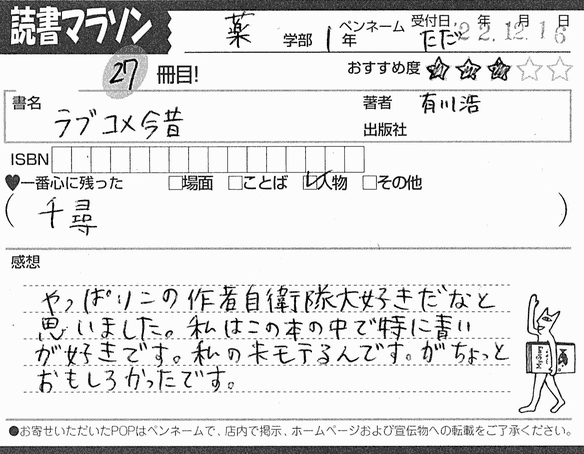 読書マラソン
薬 学部 1年 ペンネーム ただ 受付日 22年12月16日
27 冊目! おすすめ度 ★★★☆☆
書名 ラブコメ今昔
著者 有川浩
出版社
ISBN
♥一番心に残った □場面 □ことば ☑人物 □その他
(千尋)
感想
やっぱりこの作者自衛隊大好きだなと
思いました。私はこの本の中で特に青い
が好きです。私の本モテるんです。がちょっと
おもしろかったです。
●お寄せいただいたPOPはペンネームで、店内で掲示、ホームページおよび宣伝物への転載をご了承ください。